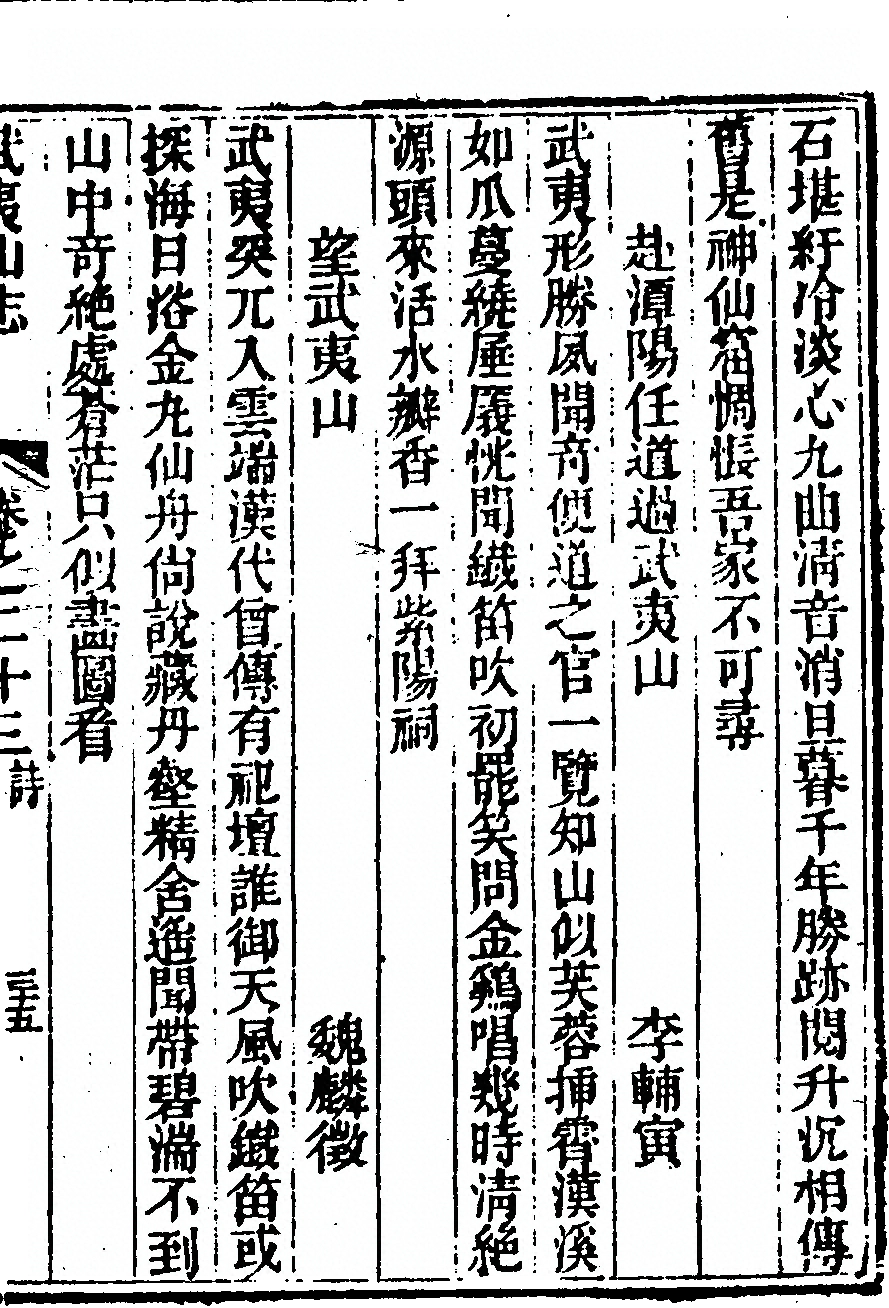 石堪紆冷淡心九曲清音消旦暮千年勝跡閱升沉相傳
舊是神仙窟惆悵吾家不可尋
赴潭陽任道過武夷山 李輔寅
武夷形勝夙聞奇便道之官一覽知山似芙蓉插霄漢溪
如爪蔓繞厜㕒恍聞鐵笛吹初罷笑問金鷄唱幾時清絕
源頭來活水瓣香一拜紫陽祠
望武夷山 魏麟徵
武夷突兀入雲端漢代曾傳有祀壇誰御天風吹鐵笛或
探海日浴金丸仙舟尚說藏丹壑精舍遙聞帶碧湍不到
山中奇絕處蒼茫只似畫圖看
武夷山志 卷之二十三 詩 三十五